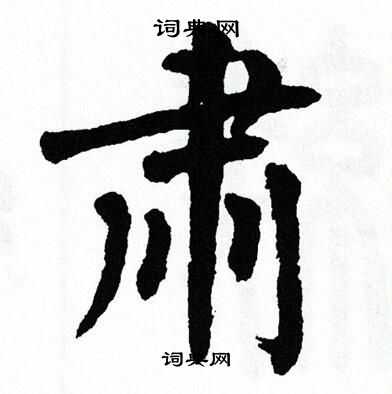 词典网
肃
词典网